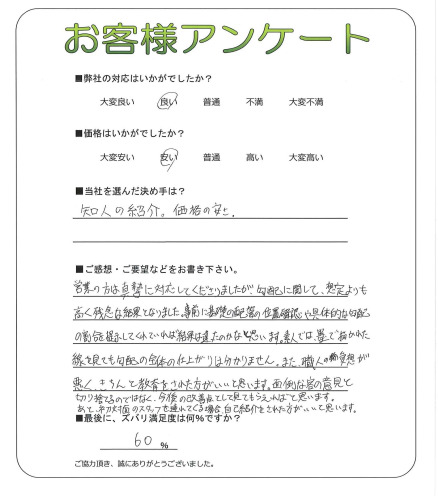 お客様アンケート
■弊社の対応はいかがでしたか？
大変良い 良い 普通 不満 大変不満
■価格はいかがでしたか？
大変安い 安い 普通 高い 大変高い
■当社を選んだ決め手は？
知人の紹介。価格の安さ.
■ご感想・ご要望などをお書き下さい。
営業の方は真摯に対応してくださりましたが勾配に関して、想定よりも
高く残念な結果となりました。事前に基礎の配管の位置確認や具体的な勾配
の割合を提示してくれていれば結果は違たのかなと思います。素人では墨でかかれた
線を見ても勾配の全体の仕上がりは分かりません。また、職人の が
悪くきちんと教育をされた方がいいと思います。面倒な客の意見と
切り捨てるのではなく、今後の改善点として見てもらえればと思います。
あと、初対面のスタッフを連れてくる場合、自己紹介をされた方がいいと思います。
■最後に、ズバリ満足度は何％ですか？
60 %
ご協力頂き、誠にありがとうございました。